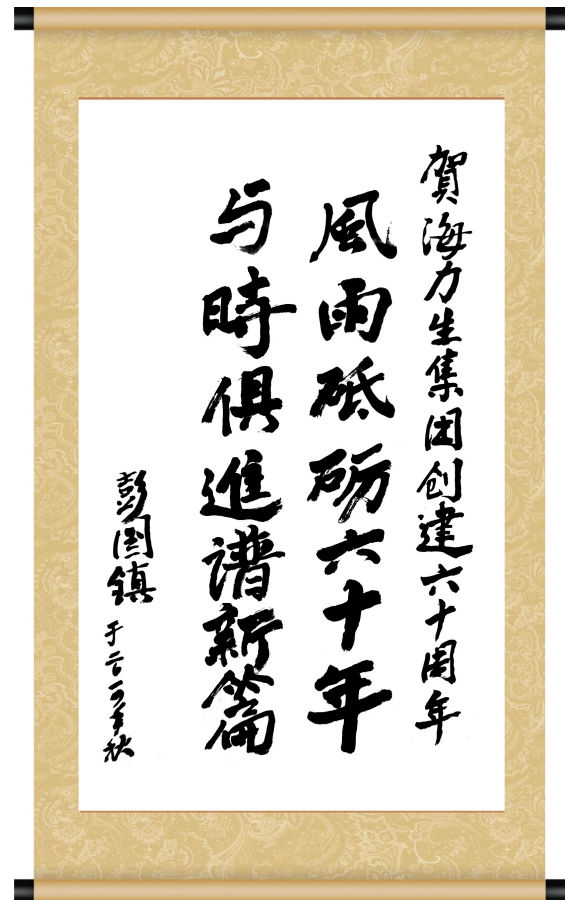 賀海力生集团创建六十周年
風雨砥砺六十年
与時俱進譜新篇
彭国鎮
于二〇一四年秋